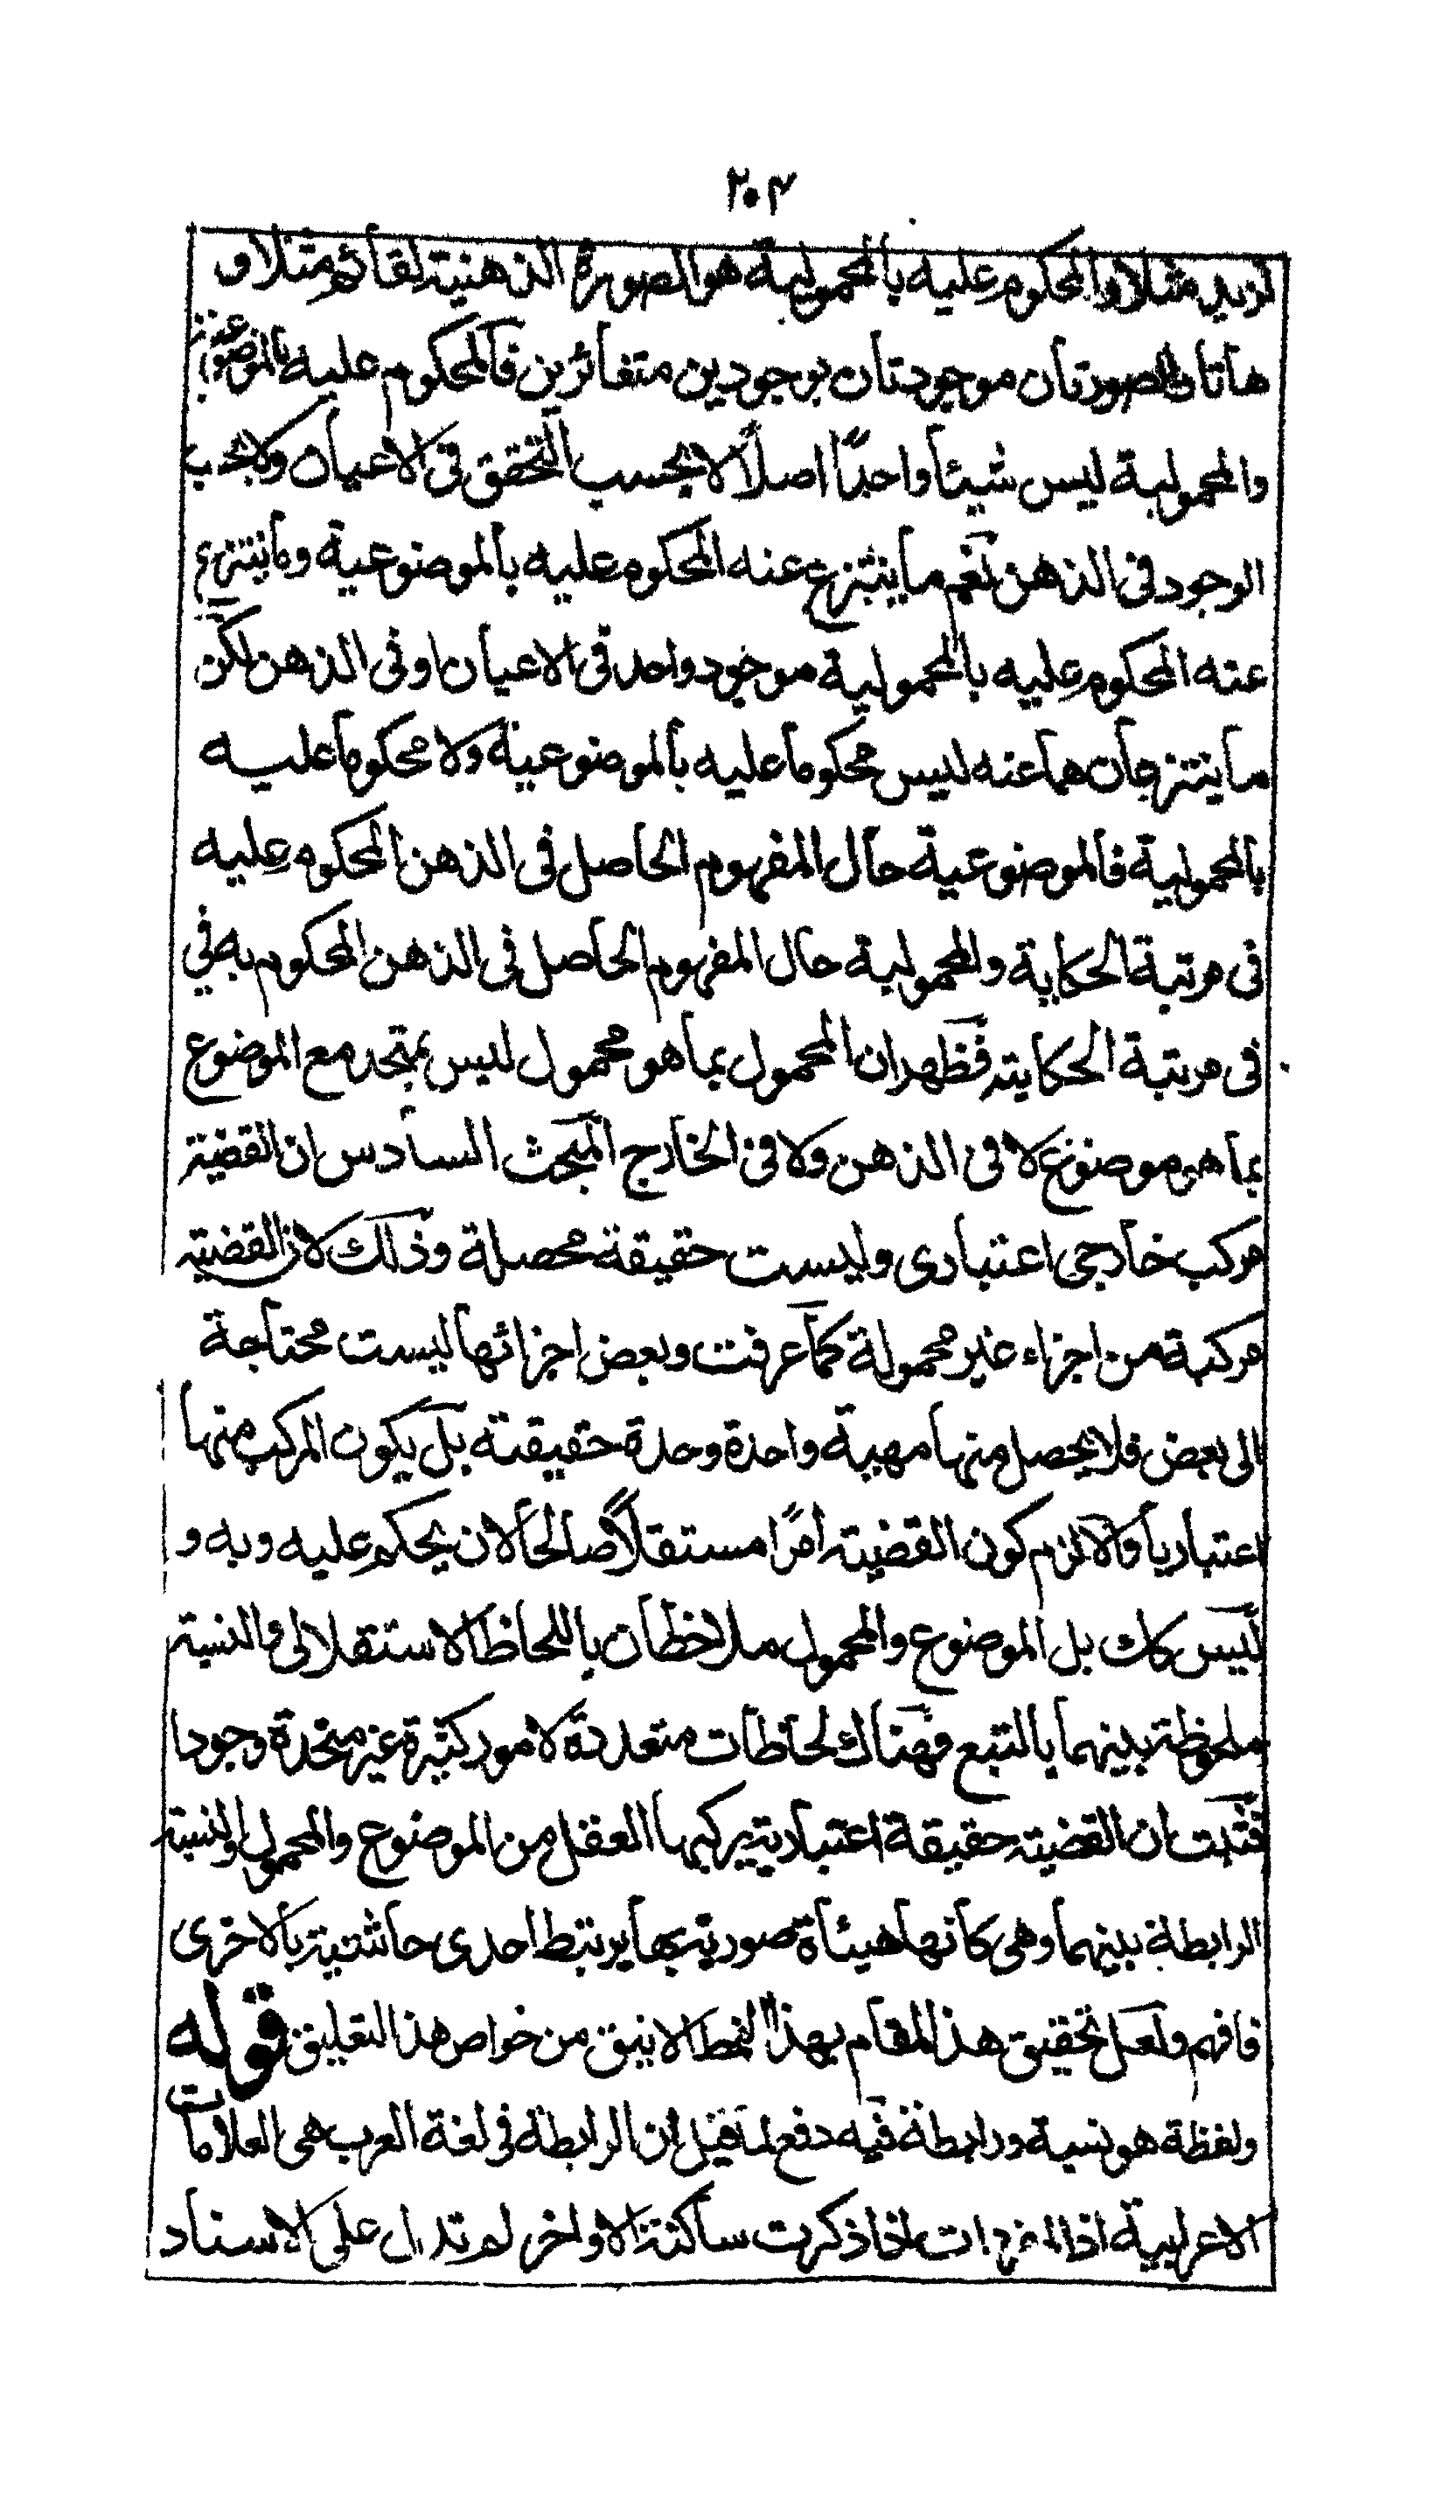 ٢٠٣
لزيد مثلا والمحكوم عليه بالمحمولية هو الصورة الذهنية لقائم مثلا و
هاتان الصورتان موجودتان بوجودين متغائرين فالمحكوم عليه بالموضوعية
والمحمولية ليس شيئا واحدًا اصلاً لا بحسب التحقق فى الاعيان ولا بحسب
الوجود فى الذهن نعم ما ينتزع عنه المحكوم عليه بالموضوعية وما ينتزع
عنه المحكوم عليه بالمحمولية موجود واحد فى الاعيان او فى الذهن لكن
ما ينتزعان هما عنه ليس محكوما عليه بالموضوعية ولا محكوما عليه
بالمحمولية فالموضوعية حال المفهوم الحاصل فى الذهن المحكوم عليه
فى مرتبة الحكاية والمحمولية حال المفهوم الحاصل فى الذهن المحكوم به في
فى مرتبة الحكاية فظهر ان المحمول بما هو محمول ليس بمتحد مع الموضوع
بما هو موضوع لا فى الذهن ولا فى الخارج المبحث السادس ان القضية
مركب خارجى اعتبارى وليست حقيقة محصلة وذالك لان القضية
مركبة من اجزاء غير محمولة كما عرفت وبعض اجزائها ليست محتاجة
الى بعض فلا يحصل منها مهية واحدة وحدة حقيقته بل يكون المركب منها
اعتباريا والا لزم كون القضية امرًا مستقلاً صالحا لان يحكم عليه وبه و
ليس كك بل الموضوع والمحمول ملاحظان باللحاظ الاستقلالى والنسبة
ملحوظة بينهما بالتبع فهناك لحاظات متعددة لامور كثيرة غير متحدة وجودا
فثبت ان القضية حقيقة اعتبارية يركبها العقل من الموضوع والمحمول والنسبة
الرابطة بينهما وهى كانها هيئاة صورية بها يرتبط احدى حاشتية بالاخرى
فافهم ولعل تحقيق هذا المقام بهذا النمط الانيق من خواص هذا التعليق قوله
ولفظة هو نسبة ورابطة فيه دفع لما قيل ان الرابطة فى لغة العرب هى العلامات
الاعرابية اذ المفردات اذا ذكرت ساكنة الاواخر لم تدل على الاسناد